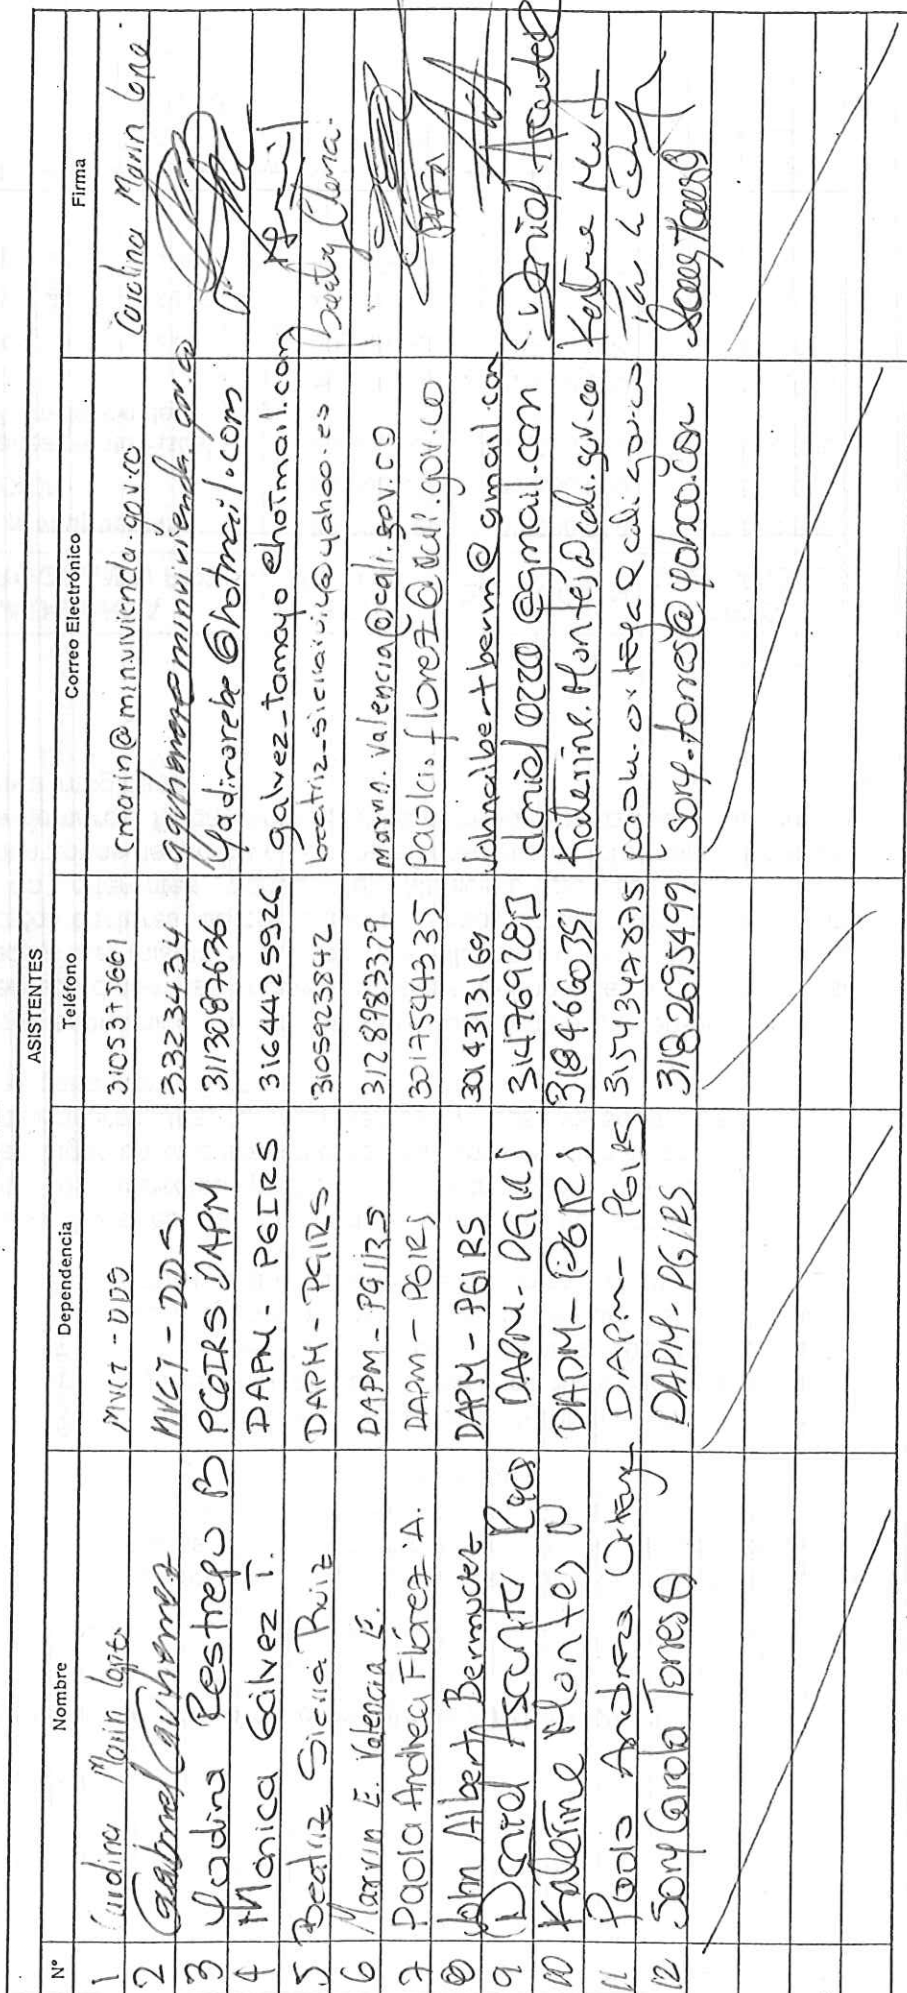 ASISTENTES
Nº Nombre Dependencia Teléfono Correo Electrónico Firma
1 Carolina Marín López MVCT - DDS 3105373661 cmarin@minvivienda.gov.co Carolina Marín
2 Gabriel MVCT - DDS 3323434
3 Yadira Restrepo B PGIRS DAPM 3113087636 Yadirarebe@hotmail.com
4 Mónica Gálvez T. DAPM - PGIRS 3164425926 galvez_tamayo@hotmail.com
5 Beatriz Sicilia Ruiz DAPM - PGIRS 3105923842 Beatriz Elena
6 Marvin E. Valencia E. DAPM - PGIRS 3128983329 marvin.valencia@cali.gov.co
7 Paola Andrea Flórez A. DAPM - PGIRS 3017544335 paola.florez@cali.gov.co
8 John Albert Bermudez DAPM - PGIRS 3014313169 johnalbertberm@gmail.com
9 Daniel Ascuntar DAPM - PGIRS Daniel Ascuntar
10 Katerine Montes N DADM - PGIRS 3184660351 Katerine.Montes@cali.gov.co
11 Paola Andrea Ortega DAPM - PGIRS 3154347875 paola.ortega@cali.gov.co
12 Sory Carola Torres Q DAPM - PGIRS 3182695499 sory.torres@yahoo.com